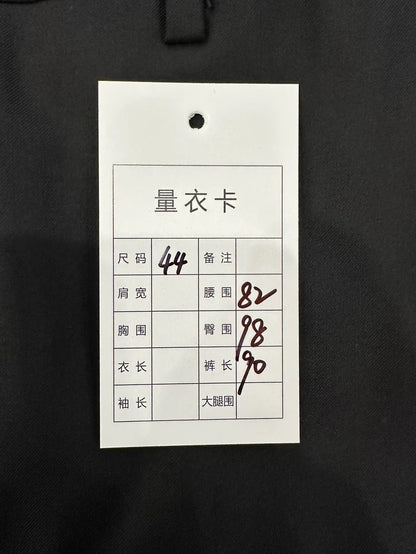 量衣卡
尺码 44 备注
肩宽 腰围 82
胸围 臀围 98
衣长 裤长 90
袖长 大腿围